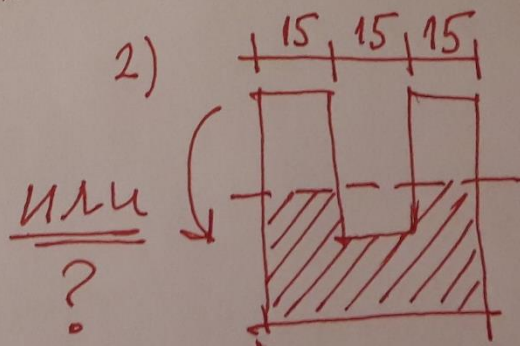 15 15 15
2)
или
?